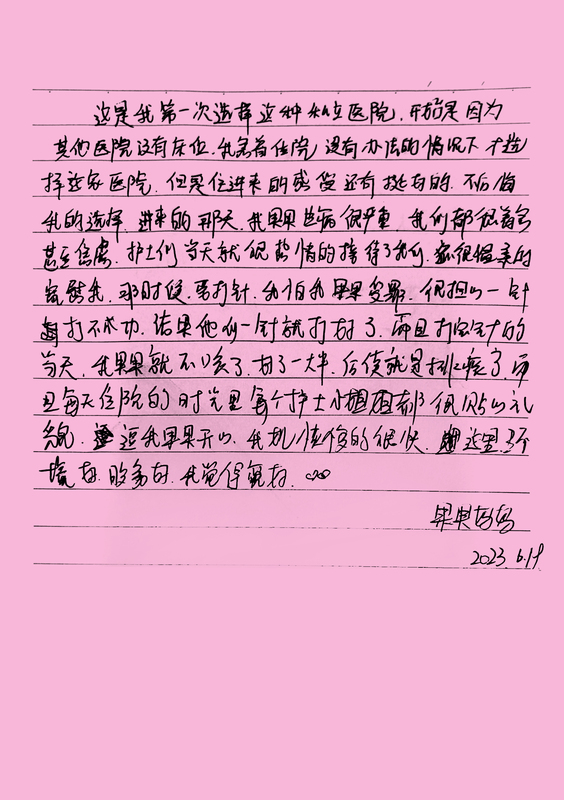 这是我第一次选择这种私立医院,开始是因为
其他医院没有床位,我急着住院没有办法的情况下才选
择这家医院,但是住进来的感受还有挺好的,不后悔
我的选择,进来的那天,我果果些病很严重,我们都很着急
甚至焦虑,护士们当天就很热情的接待了我们,很温柔的
安慰我,那时候,要打针,我怕我果果受罪,很担心一针
打不成功,结果他们一针就打好了,而且打完针的
当天,我果果就不咳了,好了一大半,后续就是
且每天住院的时光里每个护士小姐姐都很贴心礼
貌,逗我果果开心,我恢复的很快,这里环
境好,服务好,我觉得氛好,
果果妈妈
2023.6.19